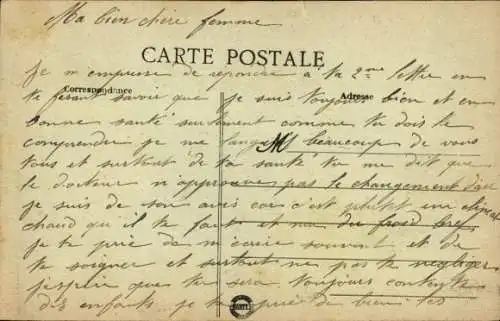 Ma bien chère femme
CARTE POSTALE
je m empresse de repondre à ta 2me lettre en
Correspondance
Adresse
te fesant savoir que je suis toujours bien et en
bonne santé seulement comme tu dois le
comprendre je me beaucoup de vous
tous et surtout de ta santé tu me dit que
le docteur n approuve pas le changement d'air
je suis de son avis car c'est plutot un climat
chaud qu il te faut et non du froid bref
je te prie de m ecrire souvent et de
te soigner et surtout ne pas te negliger
j'espère que tu sera toujours contente
des enfants je te prie de bien les